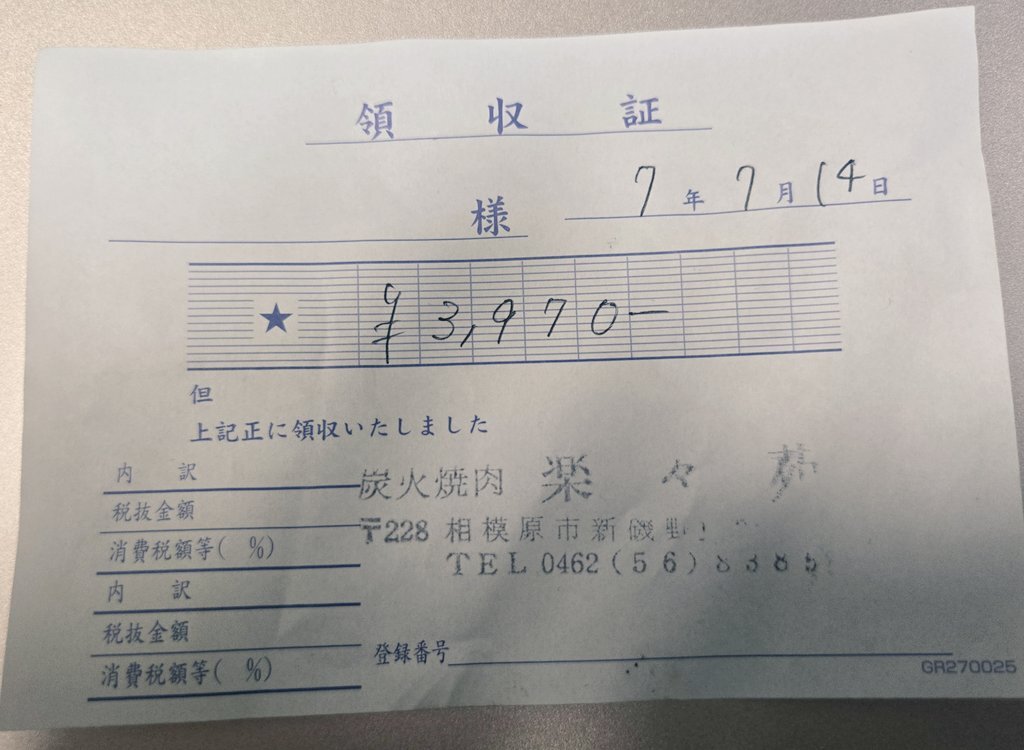 領収証
7年7月14日
様
★ ¥3,970—
但
上記正に領収いたしました
内訳
税抜金額
消費税額等( %)
内訳
税抜金額
消費税額等( %)
炭火焼肉 楽々夢
〒228 相模原市新磯野
TEL 0462(56)8385
登録番号
GR270025